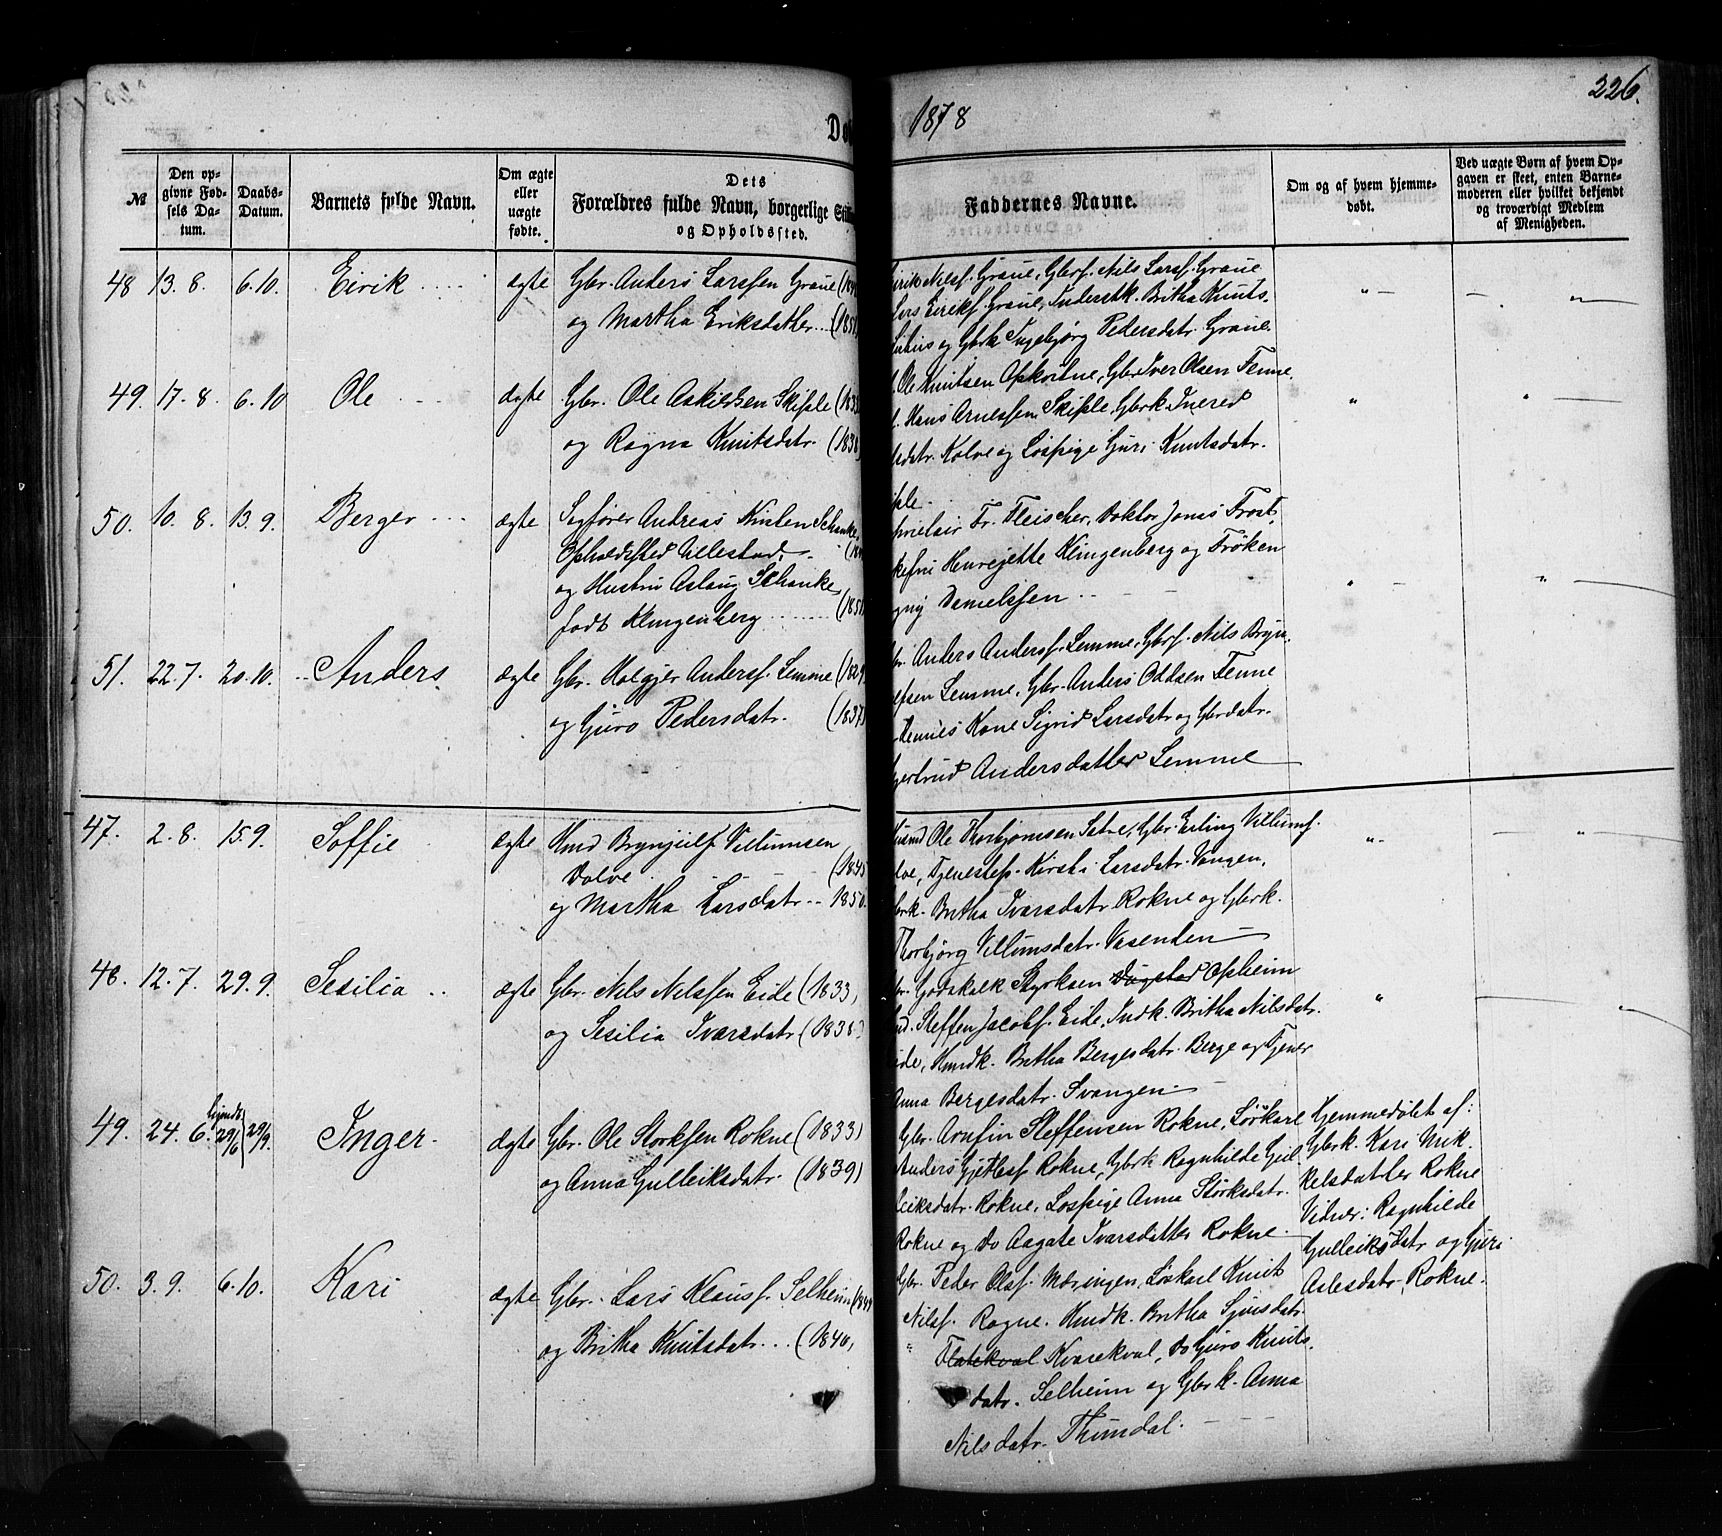 226.
1878
№
Den op-
givne Fød-
sels Da-
tum.
Daabs-
Datum.
Barnets fulde Navn.
Om ægte
eller
uægte
fødte.
Dets
Forældres fulde Navn, borgerlige
og Opholdssted.
Faddernes Navne.
Om og af hvem hjemme-
døbt.
Ved uægte Børn af hvem Op-
gaven er skeet, enten Barne-
moderen eller hvilket bekjendt
og troværdigt Medlem
af Menigheden.
48 13. 8. 6. 10. Eirik ægte Gbr. Anders Larssen Graue
og Martha Eriksdatter
Nilsf. Graue, Gbrf. Nils Larsf. Graue
Eirikf. Graue, Inderstk. Britha Knuts-
og Gbrk Ingebjørg Pedersdatr. Graue.
49. 17. 8. 6. 10 Ole ægte Gbr. Ole Askildsen Skiple
og Ragna Knutsdatr. (1838)
Ole Knutsen Opkvitne, Gbr Iver Olsen Tenne
Hans Arnessen Skiple, Gbrk Inered
Kolve og Løspige Guri Knutsdatr.
50. 10. 8. 13. 9. Berger ægte Sagfører Andreas Schanke,
Opholdssted Ullestad
og Hustru Aslaug Schanke
født Klingenberg
Fr. Fleischer, Doktor Jonas Frost,
Henrejette Klingenberg og Frøken
Danielssen
51. 22. 7. 20. 10. Anders ægte Gbr. Holgjer Andersf. Lemme
og Guro Pedersdatr. (1837)
Anders Andersf. Lemme, Gbrf. Nils Bryn-
Lemme, Gbr. Anders Oddsen Tenne
Kone Sigrid Larsdatr og Gbrdatr.
Gjertrud Andersdatter Lemme
47. 2. 8. 15. 9. Soffie ægte Hmd Brynjulf Villumsen
Dolve
og Martha Larsdatr 1850.
Ole Thorbjørnsen Sætre, Gbr. Erling Villumsf.
Tjenestep. Kirsti Larsdatr. Vangen,
Britha Ivarsdatr. Rokne og Gbrk.
Thorbjørg Villumsdatr. Vasenden
48. 12. 7. 29. 9. Sesilia ægte Gbr. Nils Nilssen Eide (1833)
og Sesilia Ivarsdatr (1838)
Godskalk Styrksen Opheim
Steffen Jacobsf. Eide, Indk. Britha Nilsdatr.
Eide, Hmdk. Britha Bergesdatr. Berge og Tjener
Anna Bergesdatr. Svangen
49. 24. 6. 29/6 29/9. Inger ægte Gbr. Ole Storksen Rokne (1833)
og Anna Gulleiksdatr. (1839)
Gbr. Arnfin Steffensen Rokne, Løskarl
Anders Gjetlesf. Rokne, Gbrk Ragnhilde Gul-
leiksdatr. Rokne, Løspige Anna Størksdatr.
Rokne og Do Aagate Ivarsdatter Rokne
Hjemmedøbt af:
Gbrk. Kari Mik-
kelsdatter Rokne
Vidner: Ragnhilde
Gulleiksdatr og Guri
Aslesdatr, Rokne.
50. 3. 9. 6. 10. Kari ægte Gbr. Lars Klausf. Selheim
og Britha Knutsdatr. (1840)
Gbr. Peder Olsf. Møringen, Løskarl Knut
Nilsf. Rogne. Hmdk. Britha Sjursdatr.
Kvarekval, Do Guro Knuts-
datr. Selheim og Gbrk. Anna
Nilsdatr. Thundal.